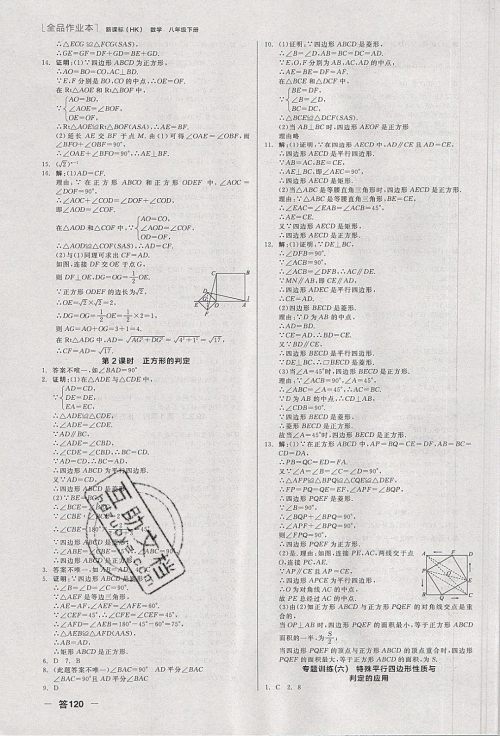 全品作业本 新课标(HK) 数学 八年级下册
∴△ECG≌△FCG(SAS),
∴GE=GF=DF+GD=BE+GD.
14. 证明:(1)∵四边形 ABCD 为正方形,
∴AO=BO=CO,AC⊥BD.
∵E,F 分别是 BO,CO 的中点,∴OE=OF.
在 Rt△AOE 和 Rt△BOF 中,
AO=BO,
∵∠AOE=∠BOF,
OE=OF,
∴Rt△AOE≌Rt△BOF(ASA),∴AE=BF.
(2)延长 AE 交 BF 于点 M,由(1)可得∠OAE=∠OBF,而
∠BFO+∠OBF=90°,
∴∠OAE+∠BFO=90°,∴AE⊥BF.
16. 解:(1)AD=CF.
理由:∵在正方形 ABCO 和正方形 ODEF 中,∠AOC=
∠DOF=90°,
∴∠AOC+∠COD=∠DOF+∠COD,
即∠AOD=∠COF.
AO=CO,
在△AOD 和△COF 中,∵∠AOD=∠COF,
OD=OF,
∴△AOD≌△COF(SAS),∴AD=CF.
(2)与(1)同理可求出 CF=AD.
如图,连接 DF 交 OE 于点 G,
则 DF⊥OE,DG=OG=1/2 OE.
∵正方形 ODEF 的边长为√2,
∴OE=√2×√2=2,
∴DG=OG=1/2 OE=1/2×2=1,
则 AG=AO+OG=3+1=4.
在 Rt△ADG 中,AD=√(AG²+DG²)=√(4²+1²)=√17,
∴CF=AD=√17.
第 2 课时 正方形的判定
1. 答案不唯一,如∠BAD=90°
2. 证明:(1)在△ADE 与△CDE 中,
AD=CD,
∵DE=DE,
EA=EC,
∴△ADE≌△CDE,
∴∠ADE=∠CDE.
∵AD∥BC,
∴∠ADE=∠CBD,
∴∠CDE=∠CBD,∴BC=CD.
∵AD=CD,∴BC=AD,
∴四边形 ABCD 为平行四边形.
又∵AD=CD,
∴四边形 ABCD 是菱形.
(2)∵BE=BC,
∴四边形 ABCD 是正方形.
5. 证明:∵四边形 ABCD 是矩形,
∴∠B=∠D=∠C=90°.
∵△AEF 是等边三角形,
∴AE=AF,∠AEF=∠AFE=60°.
∵∠CEF=45°,∴∠CFE=∠CEF=45°,
∴∠AFD=∠AEB=180°-45°-60°=75°,
∴△AEB≌△AFD(AAS),
∴AB=AD,
∴矩形 ABCD 是正方形.
6. D 7. B
8. (此题答案不唯一)∠BAC=90° AD 平分∠BAC
∠BAC=90°且 AD 平分∠BAC
9. D
答120
10. (1)证明:∵四边形 ABCD 是菱形,
∴∠B=∠D,AB=BC=DC=AD.
∵E,O,F 分别为 AB,AC,AD 的中点,
∴AE=BE=DF=AF.
在△BCE 和△DCF 中,
BE=DF,
∵∠B=∠D,
BC=DC,
∴△BCE≌△DCF(SAS).
(2)当 AB⊥BC 时,四边形 AEOF 是正方形
理由略
11. 解:(1)证明:∵在四边形 AECD 中,AD∥CE 且 AD=CE,
∴四边形 AECD 是平行四边形.
∵AB=AC,BE=CE,
∴AE⊥BC,即∠AEC=90°,
∴四边形 AECD 是矩形.
(2)当△ABC 是等腰直角三角形时,四边形 AECD 是正方形.
理由:∵△ABC 是等腰直角三角形,BE=CE,
∴∠EAC=∠EAB=∠ACB=45°,
∴AE=CE.
又∵四边形 AECD 是矩形,
∴四边形 AECD 是正方形.
12. 解:(1)证明:∵DE⊥BC,
∴∠DFB=90°.
∵∠ACB=90°,
∴∠ACB=∠DFB,∴AC∥DE.
∵MN∥AB,即 CE∥AD,
∴四边形 ADEC 是平行四边形,
∴CE=AD.
(2)四边形 BECD 是菱形.
理由:∵D 为 AB 的中点,
∴AD=BD.
∵CE=AD,∴BD=CE.
又∵BD∥CE,
∴四边形 BECD 是平行四边形.
∵DE⊥BC,∴▱BECD 是菱形.
(3)当∠A=45°时,四边形 BECD 是正方形.
理由:∵∠ACB=90°,∠A=45°,
∴∠ABC=∠A=45°,∴AC=BC.
∵D 为 AB 的中点,∴CD⊥AB,
∴∠CDB=90°.
∵四边形 BECD 是菱形,
∴菱形 BECD 是正方形.
故当∠A=45°时,四边形 BECD 是正方形.
13. 解:(1)∵在正方形 ABCD 中,AP=BQ=CE=DF,AB=BC=
CD=DA,
∴PB=QC=ED=FA.
又∵∠A=∠B=∠C=∠D=90°,
∴△AFP≌△BPQ≌△CQE≌△DEF,
∴FP=PQ=QE=EF,∠APF=∠BQP.
∴四边形 PQEF 是菱形.
∵∠B=90°,
∴∠BQP+∠BPQ=90°,
∴∠APF+∠BPQ=90°,
则∠FPQ=90°,
∴四边形 PQEF 为正方形.
(2)是.理由:如图,连接 PE,AC,两线交于点
O,连接 PC,AE.
∵AP∥CE 且 AP=CE,
∴四边形 APCE 为平行四边形,
∴O 为对角线 AC 的中点,
故 PE 总经过 AC 的中点.
(3)由(2)知正方形 ABCD 与正方形 PQEF 的对角线交点是重
合的.
当 OP⊥AB 时,四边形 PQEF 的面积最小,等于正方形 ABCD
面积的一半,为 S/2;
当四边形 PQEF 的顶点与正方形 ABCD 的顶点重合时,四边形
PQEF 的面积最大,等于正方形 ABCD 的面积,为 S.
专题训练(六) 特殊平行四边形性质与
判定的应用
1. C 2. 8